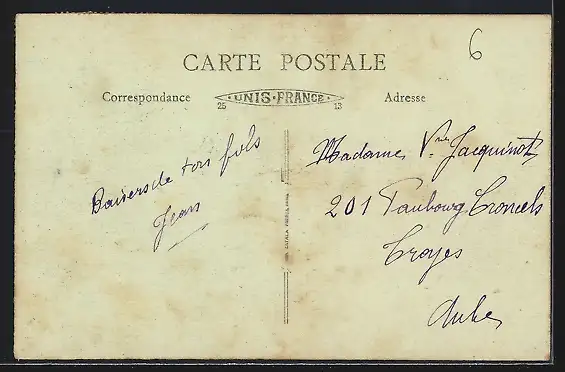 6
CARTE POSTALE
Correspondance
UNIS-FRANCE
25 13
Adresse
Baisers de ton fils
Jean
Madame Vve Jacquinot
201 Faubourg Croncels
Troyes
Aube